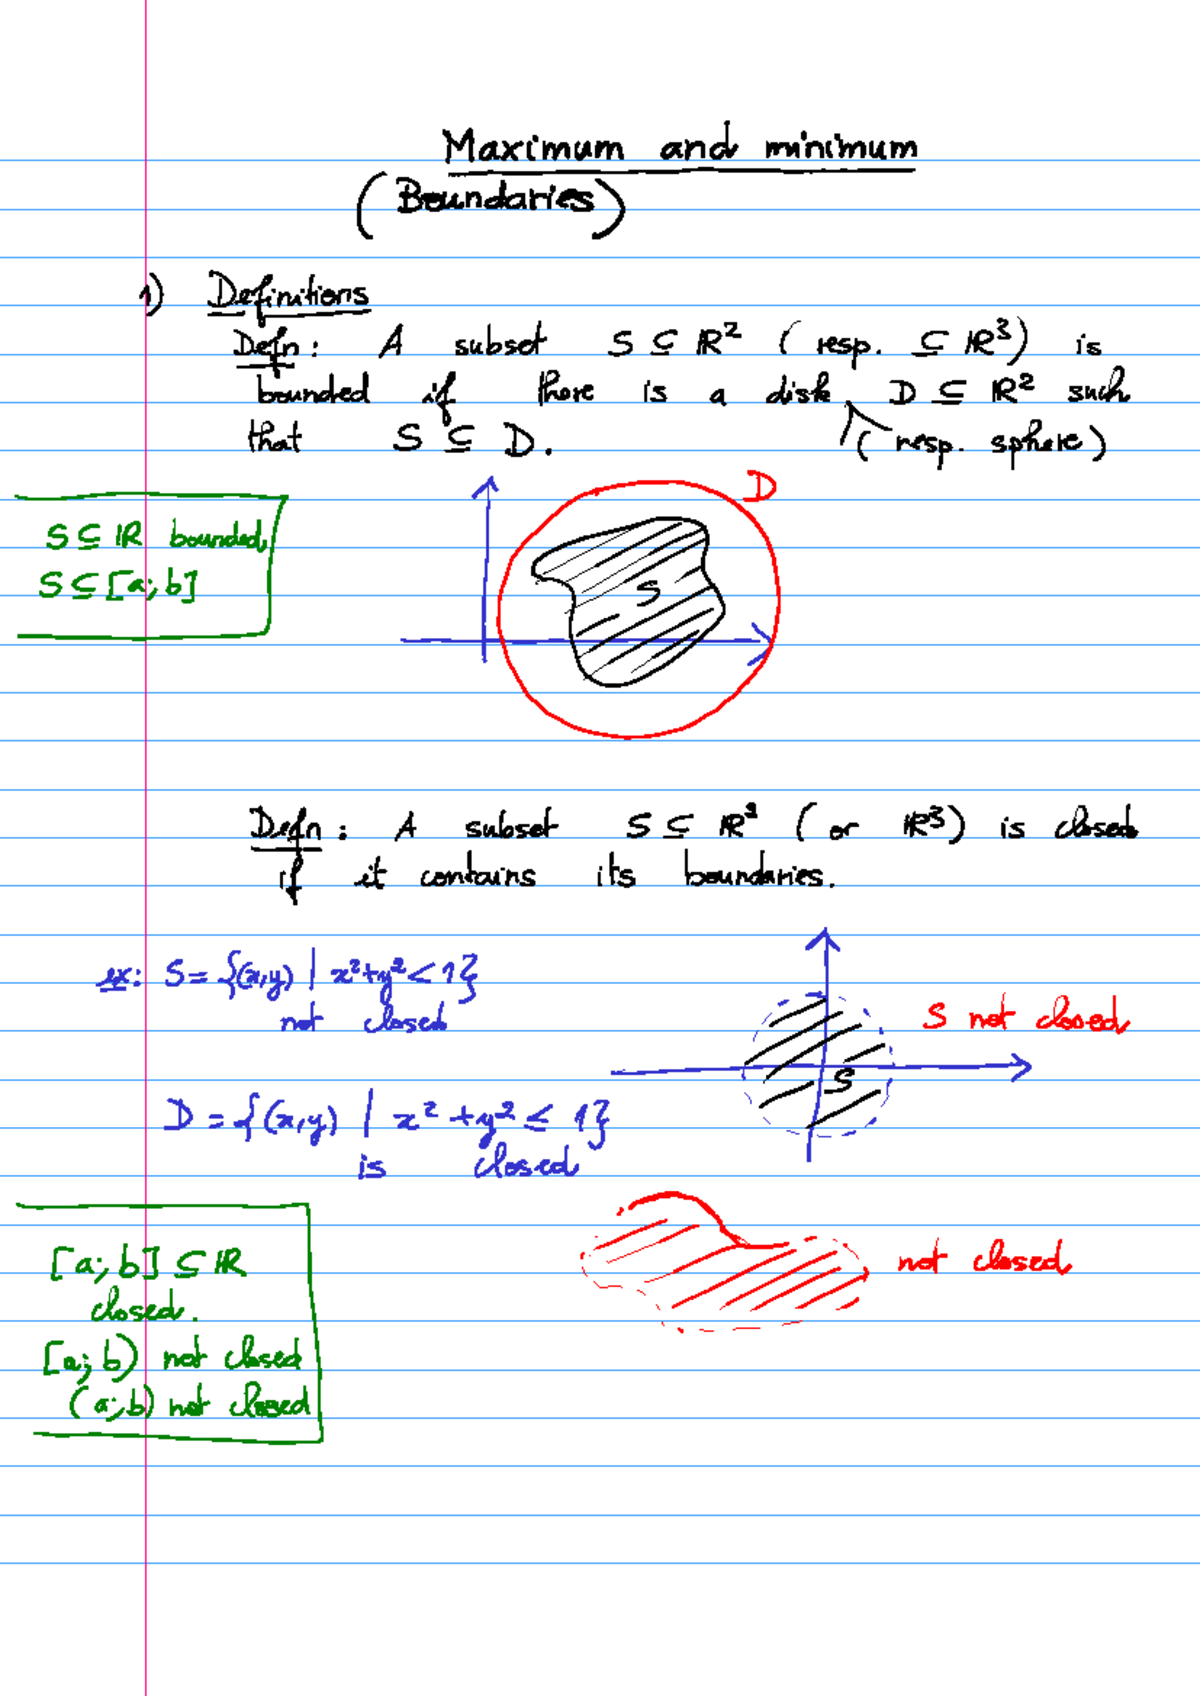 Maximum and minimum
(Boundaries)
1) Definitions
Defn: A subset S ⊆ ℝ² (resp. ⊆ ℝ³) is
bounded if there is a disk D ⊆ ℝ² such
that S ⊆ D. (resp. sphere)
D
S ⊆ ℝ bounded,
S ⊆ [a; b]
S
Defn: A subset S ⊆ ℝ² (or ℝ³) is closed
if it contains its boundaries.
ex: S = {(x,y) | x²+y² < 1}
not closed
S not closed
S
D = {(x,y) | x² + y² ≤ 1}
is closed
[a; b] ⊆ ℝ
closed.
[a; b) not closed
(a; b) not closed
not closed